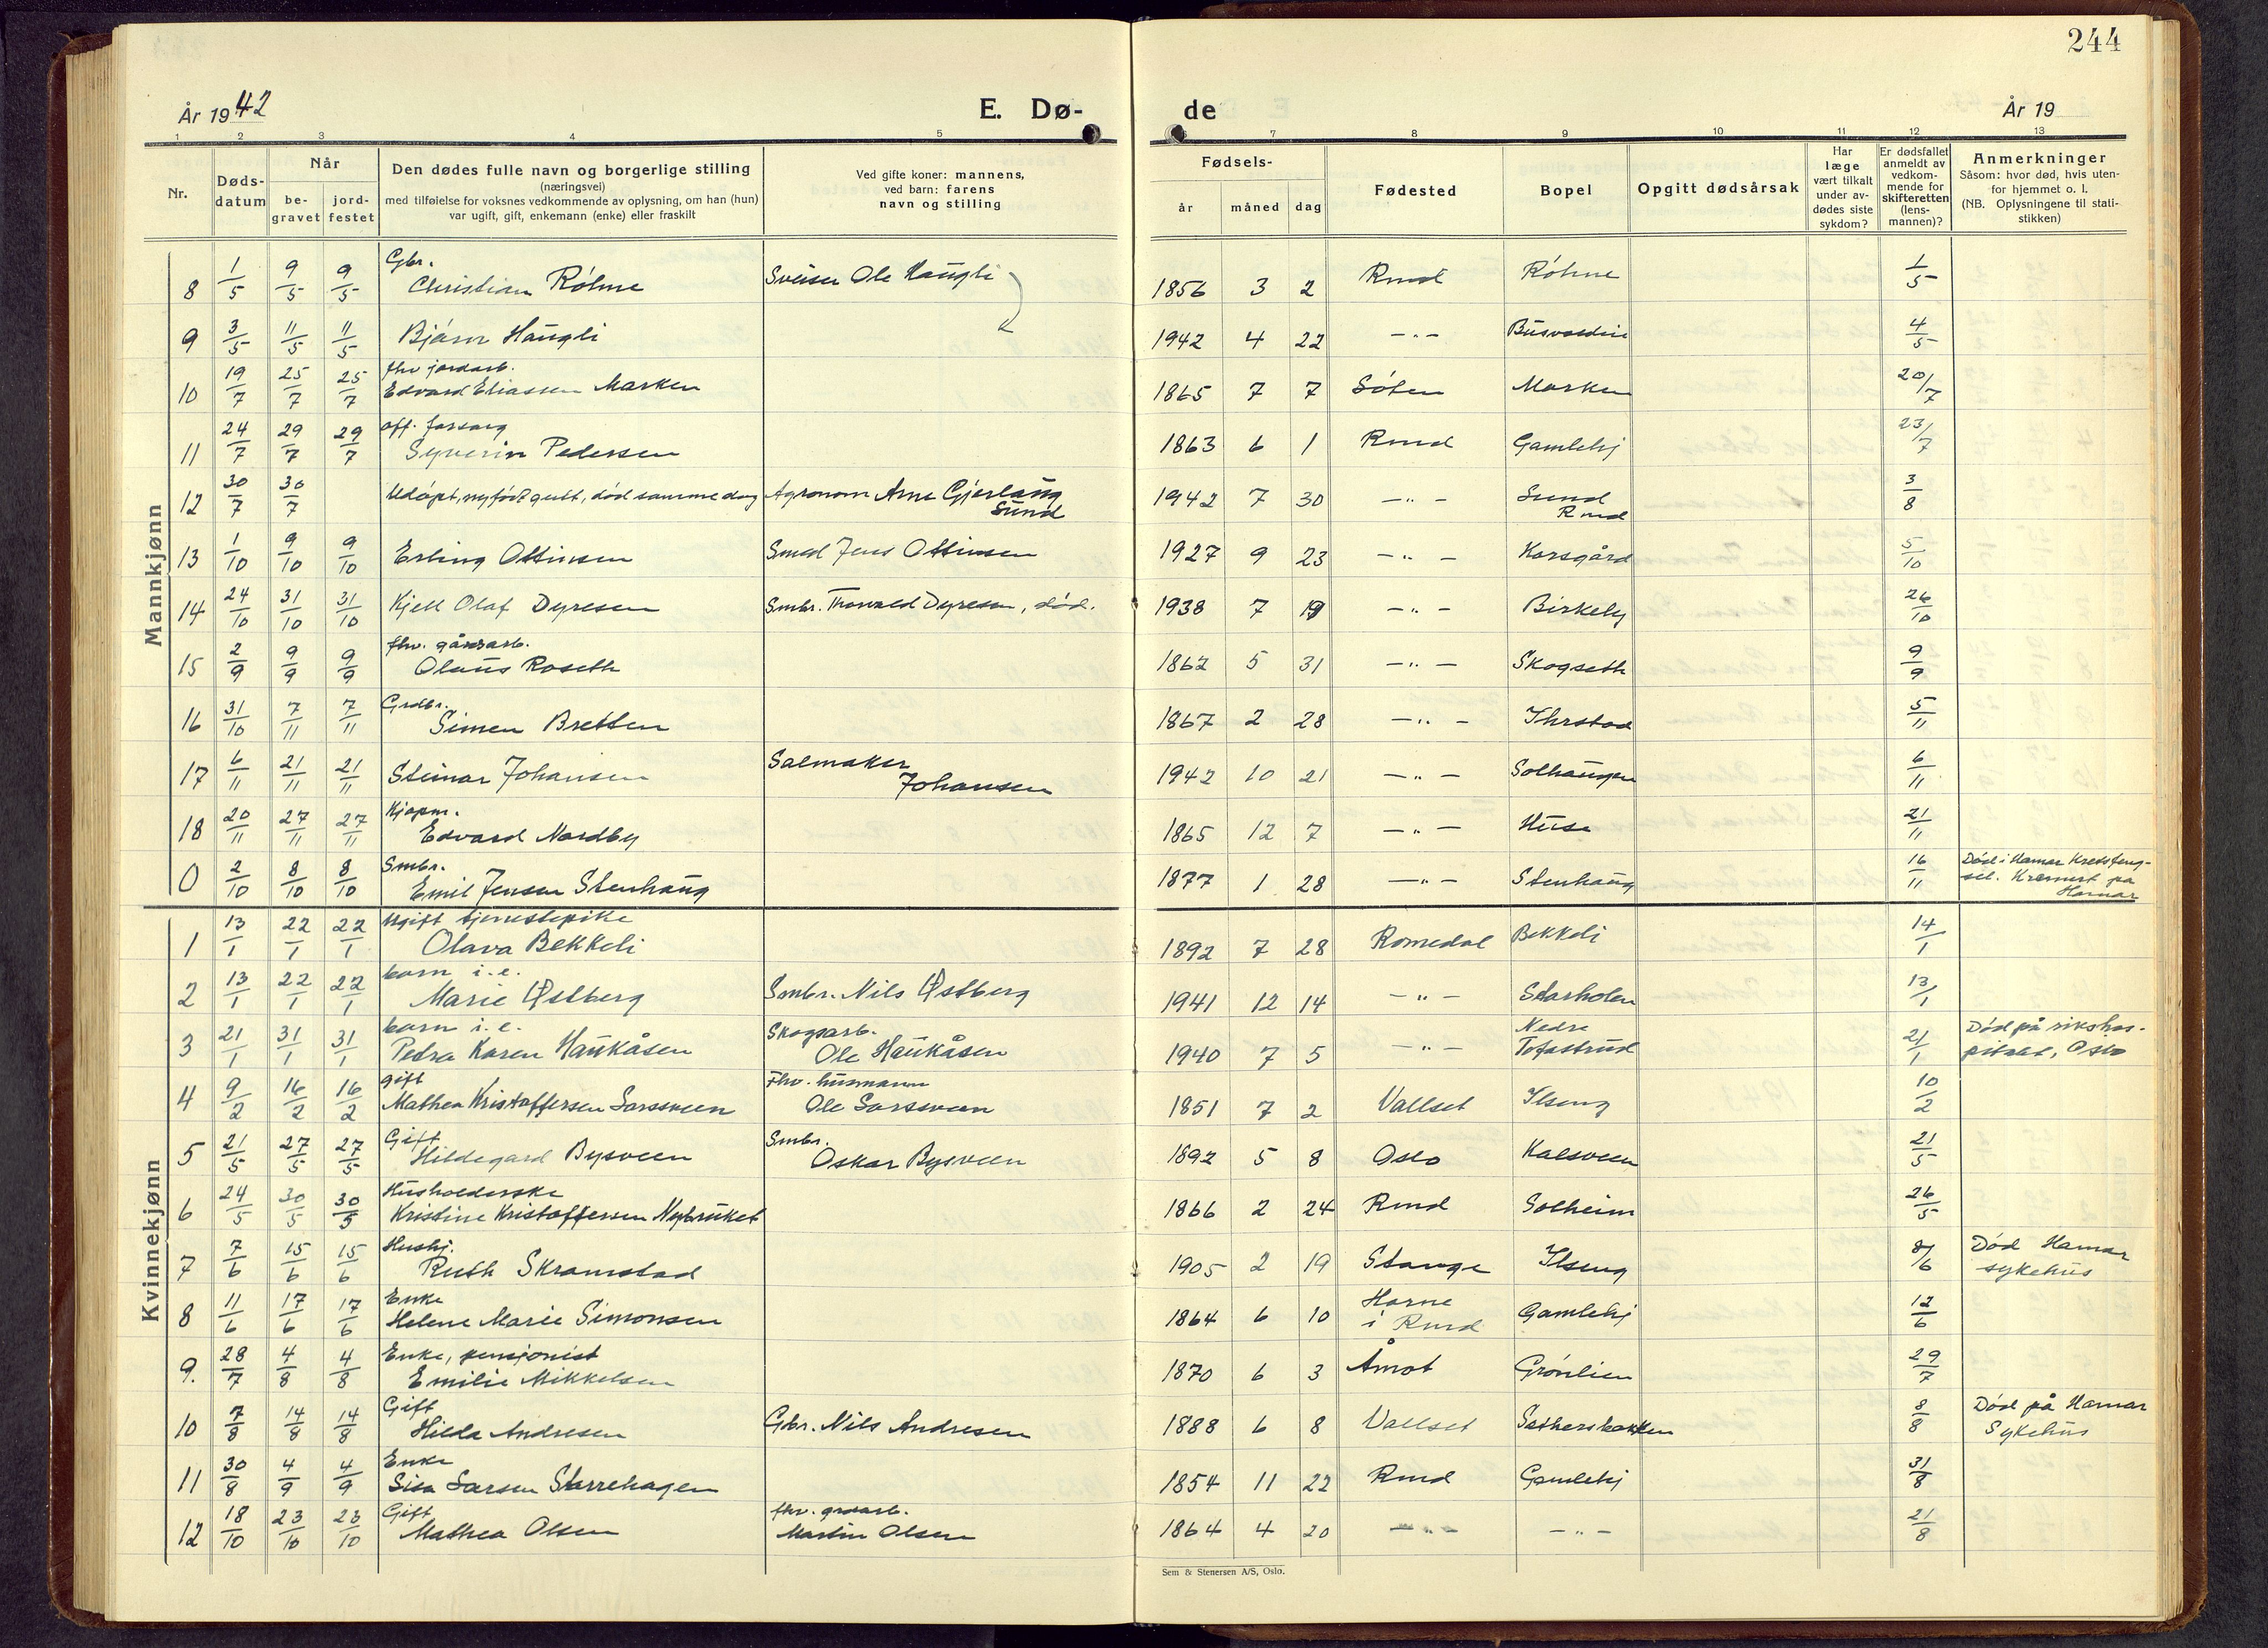 244
År 1942
E. Dø-
de
År 19
1 2 3 4 5 6 7 8 9 10 11 12 13
Nr.
Døds-
datum
Når
be-
gravet
jord-
festet
Den dødes fulle navn og borgerlige stilling
(næringsvei)
med tilføielse for voksnes vedkommende av oplysning, om han (hun)
var ugift, gift, enkemann (enke) eller fraskilt
Ved gifte koner: mannens,
ved barn: farens
navn og stilling
Fødsels-
år måned dag
Fødested
Bopel
Opgitt dødsårsak
Har
læge
vært tilkalt
under av-
dødes siste
sykdom?
Er dødsfallet
anmeldt av
vedkom-
mende for
skifteretten
(lens-
mannen)?
Anmerkninger
Såsom: hvor død, hvis uten-
for hjemmet o. l.
(NB. Oplysningene til stati-
stikken)
Mannkjønn
Gbr.
8 1/5 9/5 9/5 Christian Röhne Sveiser Ole Haugli 1856 3 2 Rmd Röhne 1/5
9 3/5 11/5 11/5 Bjørn Haugli 1942 4 22 -"- 4/5
fhv jordarb.
10 19/7 25/7 25/7 Edvard Eliassen Marken 1865 7 7 Löten Marken 20/7
off. forsorg
11 24/7 29/7 29/7 Syverin Pedersen 1863 6 1 Rmd Gamlehj 23/7
12 30/7 30/7 Udöpt, nyfödt gutt, död samme dag Agronom Arne Gjerlaug 1942 7 30 -"- Sund 3/8
Sund Rmd
13 1/10 9/10 9/10 Erling Ottinsen Smed Jens Ottinsen 1927 9 23 -"- Korsgård 5/10
14 24/10 31/10 31/10 Kjell Olaf Dyresen Smbr. Thorvald Dyresen, död. 1938 7 19 -"- Birkely 26/10
fhv. gårdsarb.
15 2/9 9/9 9/9 Olaus Roseth 1862 5 31 -"- Skogseth 9/9
Grdbr.
16 31/10 7/11 7/11 Simen Bretten 1867 2 28 -"- Ihrstad 5/11
17 6/11 21/11 21/11 Steinar Johansen Salmaker 1942 10 21 -"- Solhaugen 6/11
Johansen
Kjøpm.
18 20/11 27/11 27/11 Edvard Nordby 1865 12 7 -"- Huse 21/11
Smbr.
0 2/10 8/10 8/10 Emil Jensen Stenhaug 1877 1 28 -"- Stenhaug 16/11 Död i Hamar Kretsfeng-
sel. Kremert på
Hamar
Kvinnekjønn
Ugift tjenestepike
1 13/1 22/1 22/1 Olava Bekkeli 1892 7 28 Romedal Bekkeli 14/1
barn i.e.
2 13/1 22/1 22/1 Marie Østberg Smbr. Nils Østberg 1941 12 14 -"- Starholen 13/1
barn i.e. Skogsarb. Nedre
3 21/1 31/1 31/1 Petra Karen Haukåsen Ole Haukåsen 1940 7 5 -"- Tofastrud 21/1 Död på rikshos-
pitalet, Oslo
gift Fhv. husmann
4 9/2 16/2 16/2 Mathea Kristoffersen Larssveen Ole Larsveen 1851 7 2 Vallset Ilseng 10/2
Gift Smbr.
5 21/5 27/5 27/5 Hildegard Bysveen Oskar Bysveen 1892 5 8 Oslo Kalsveen 21/5
Husholderske
6 24/5 30/5 30/5 Kristine Kristoffersen Nybruket 1866 2 24 Rmd Solheim 26/5
Hushj.
7 7/6 15/6 15/6 Ruth Skramstad 1905 2 19 Stange Ilseng 8/6 Död Hamar
sykehus
Enke Horne
8 11/6 17/6 17/6 Helene Marie Simonsen 1864 6 10 i Rmd Gamlehj 12/6
Enke, pensjonist
9. 28/7 4/8 4/8 Emilie Mikkelsen 1870 6 3 Åmot Grönlien 29/7
Gift
10 7/8 14/8 14/8 Hilda Andresen Gbr. Nils Andresen 1888 6 8 Vallset Sætherbakken 8/8 Död på Hamar
Sykehus
Enke
11 30/8 4/9 4/9 Lisa Larsen Starrehagen 1854 11 22 Rmd Gamlehj 31/8
Gift fhv. grdarb.
12 18/10 23/10 23/10 Mathea Olsen Martin Olsen 1864 4 20 -"- -"- 21/8
Sem & Stenersen A/S, Oslo.